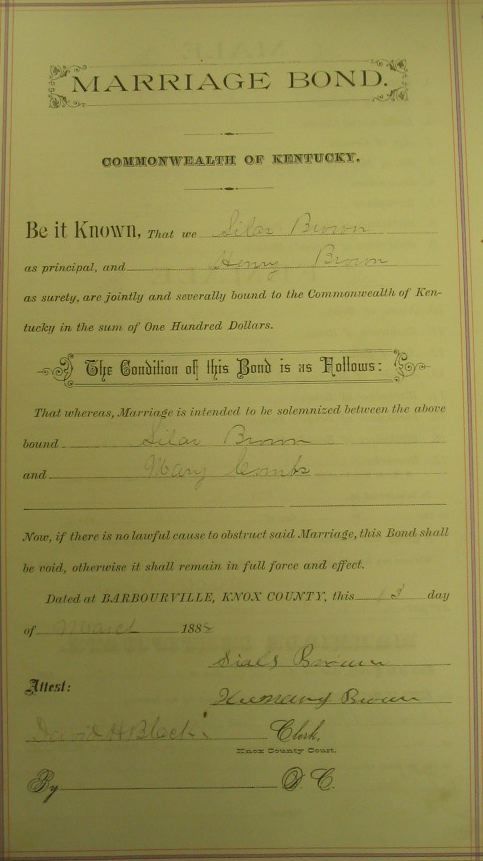 MARRIAGE BOND.
COMMONWEALTH OF KENTUCKY.
Be it Known, That we Silas Brown
as principal, and Henry Brown
as surety, are jointly and severally bound to the Commonwealth of Ken-
tucky in the sum of One Hundred Dollars.
The Condition of this Bond is as Follows:
That whereas, Marriage is intended to be solemnized between the above
bound Silas Brown
and Mary
Now, if there is no lawful cause to obstruct said Marriage, this Bond shall
be void, otherwise it shall remain in full force and effect.
Dated at BARBOURVILLE, KNOX COUNTY, this 13 day
of March 1888
Sials Brown
Attest: Brown
David H Black Clerk,
Knox County Court.
By D. C.